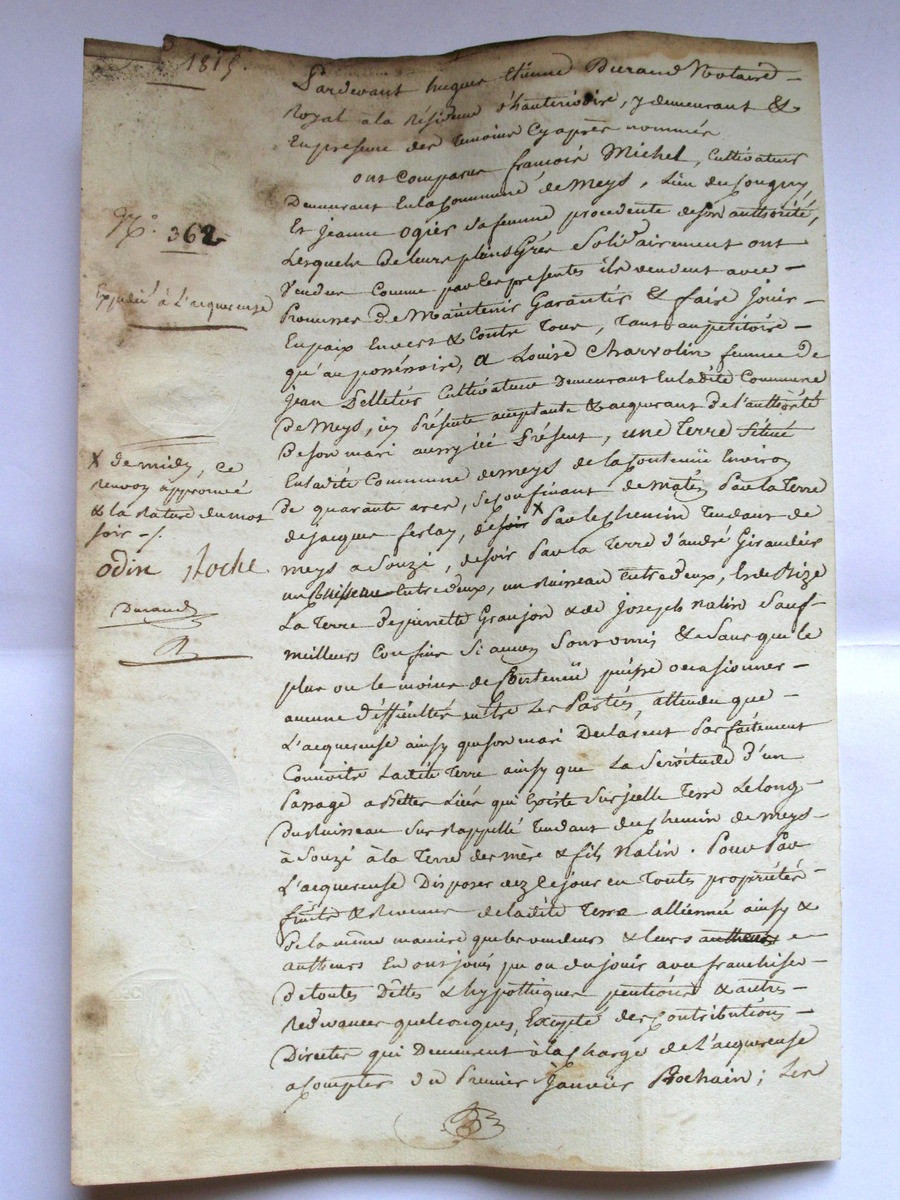 1815.
N.o 362
Expedié à L'acquereuse
X de midy, ce
renvoy approuvé
& la rature du mot
soir -/.
odin Roche
Durand
Pardevant hugues Etienne Durand Notaire
Royal a la Résidence d'hauterivoire, y demeurant &
En presence des Temoins Cy après nommés
ont comparus francois Michel, Cultivateur
Demeurant En la Commune de Meys, Lieu du
Et Jeanne Ogier sa femme procedente de son authorité,
Lesquels De leurs pleins Grés Solidairement ont
Vendu Comme par les presentes ils vendent avec
Promesse De Maintenir Garantir & faire Jouir
En paix Envers & Contre Tous, Tant au petitoire
qu'au possessoire, a Louise Charvolin femme De
Jean Pelletier Cultivateur Demeurant En la dite Commune
De Meys, icy Présente acceptante & acquerant De l'authorité
De son mari aussy icé Présent, une Terre Située
En la dite Commune de meys de la Contenüe Environ
De quarante ares, se confinant de matin Par la Terre
de Jacques ferlay, de soir X Par le Chemin Tendant de
meys a Souzé, de soir Par la Terre d'andré Giraudier
un Ruisseau Entre deux, un Ruisseau Entre deux, & de Bize
La Terre de pierrette Granjon & de Joseph Nalin Sauf
meilleurs Confins Si aucuns Sont omis & Sans que le
plus ou le moins de Contenüe puisse occasionner
aucune Difficultés entre Les Parties, attendu que
L'acquereuse ainsy que son mari Declarent Parfaitement
Connoitre La dite Terre ainsy que La Servitude D'un
Passage a Bettes Liées qui Existe Sur icelle Terre Le long
Du Ruisseau Sus Rappellé Tendant du Chemin de Meys
à Souzé à la Terre des mère & fils Nalin. Pour Par
L'acquereuse Disposer dez Ce jour en Toutes propriétés
fruits & Revenus de la dite Terre alliennée ainsy &
De la même maniere que les vendeurs & leurs autheurs
autheurs En ont joüis pu ou du jouir avec franchise
De toutes Dettes & hypothèques pentions & autres
Redevances quelconques, Excepté des Contributions
Directes qui Demeurent à la charge de L'acquereuse
a Compter du Premier Janvier Prochain; Les